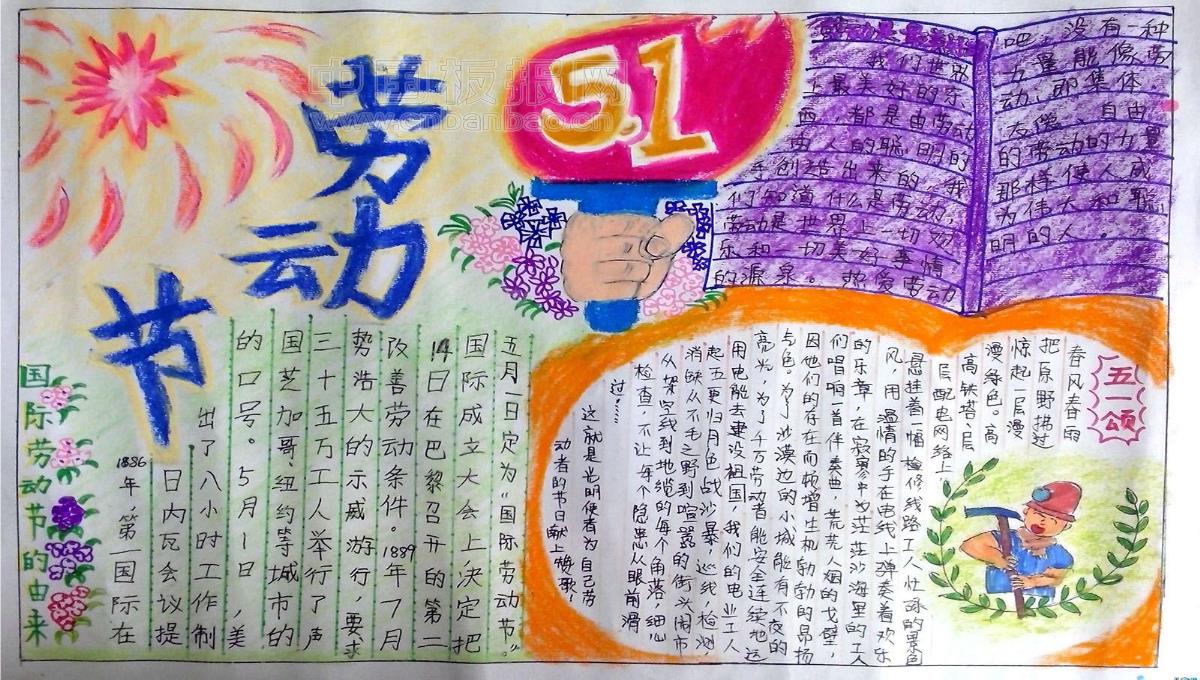 劳动节
5.1
中国板报网
www.cnbanbao.cn
国际劳动节的由来
1886
年,第一国际在
日内瓦会议提
出了八小时工作制
的口号。5月1日,美
国芝加哥、纽约等城市的
三十五万工人举行了声
势浩大的示威游行,要求
改善劳动条件。1889年7月
14日在巴黎召开的第二
国际成立大会上决定把
五月一日定为“国际劳动节”。
我们世界
上最美好的东
西,都是由劳动
由人的聪明的
手创造出来的,我
们知道什么是劳动,
劳动是世界上一切欢
乐和一切美好事情
的源泉。热爱劳动
吧,没有一种
力量能像劳
动,即集体,
友偲、自由
的劳动的力量
那样使人成
为伟大和聪
明的人。
五一颂
春风春雨
把原野拂过
惊起一层漫
漫绿色。高
高铁塔、层
层配电网络上,
悬挂着一幅检修线路工人忙碌的景色
风,用温情的手在电线上弹奏着欢乐
的乐章,在寂寥中为茫茫沙海里的工人
们唱响一首伴奏曲,荒芜人烟的戈壁,
因他们的存在而顿增生机勃勃的昂扬
与色。为了沙漠边的小城能有不夜的
亮光,为了千万劳动者能安全连续地运
用电能去建设祖国,我们的电业工人
起五更归月色战沙暴,巡线,检测,
消缺从不毛之野到喧嚣的街头闹市
从架空线到地缆的每个角落,细心
检查,不让每个隐患从眼前滑
过……
这就是光明使者为自己劳
动者的节日献上赞歌!